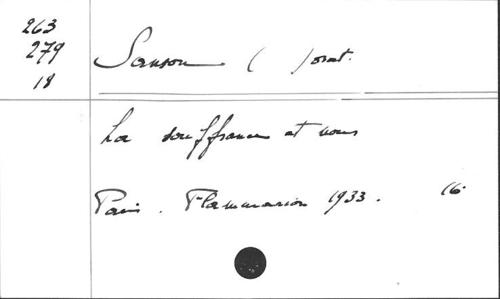 263
279
18
Sanson (
La souffrance et nous
Paris. Flammarion 1933. 16°